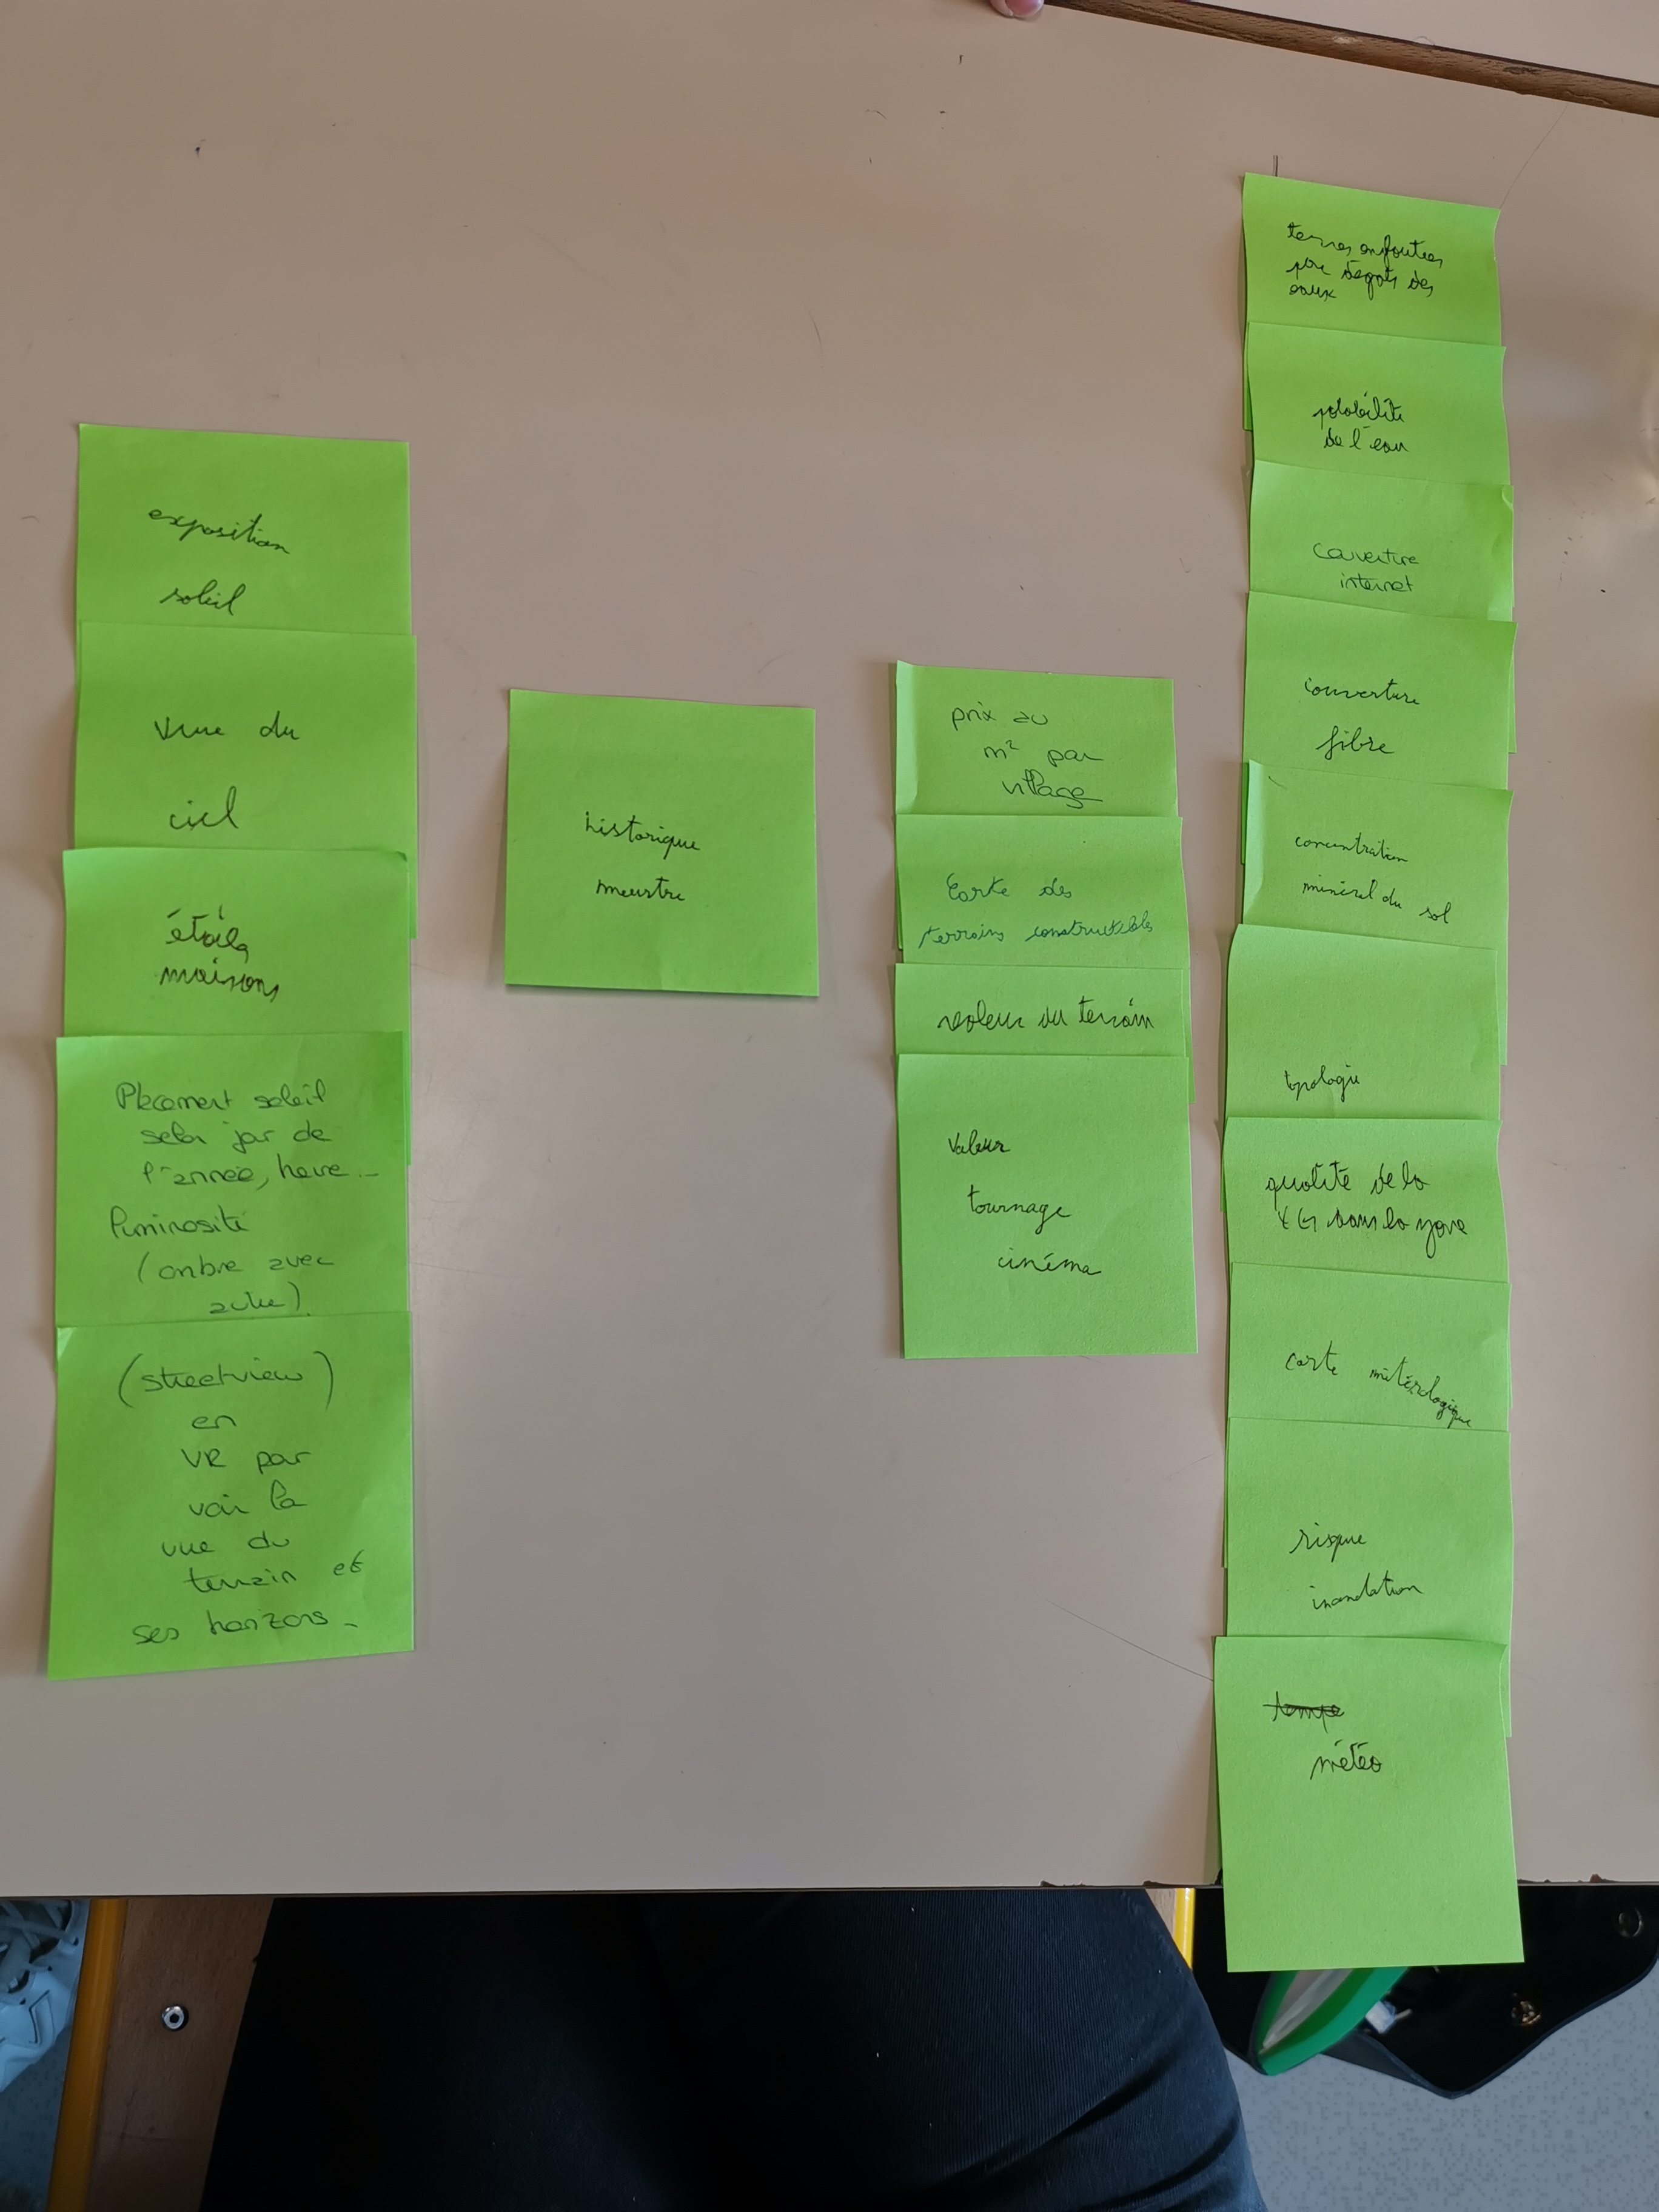 exposition
soleil
vue du
ciel
étoiles
maisons
Placement soleil
selon jour de
l'année, heure...
luminosité
(ombre avec
autre)
(streetview)
en
VR pour
voir la
vue du
terrain et
ses horizons -
historique
meurtre
prix au
m² par
village
Carte des
terrains constructibles
valeur du terrain
Valeur
tournage
cinéma
terres
par dégats des
eaux
potabilité
de l'eau
couverture
internet
couverture
fibre
concentration
minéral du sol
topologie
qualité de la
4G dans la zone
carte météorologique
risque
inondation
temps
météo